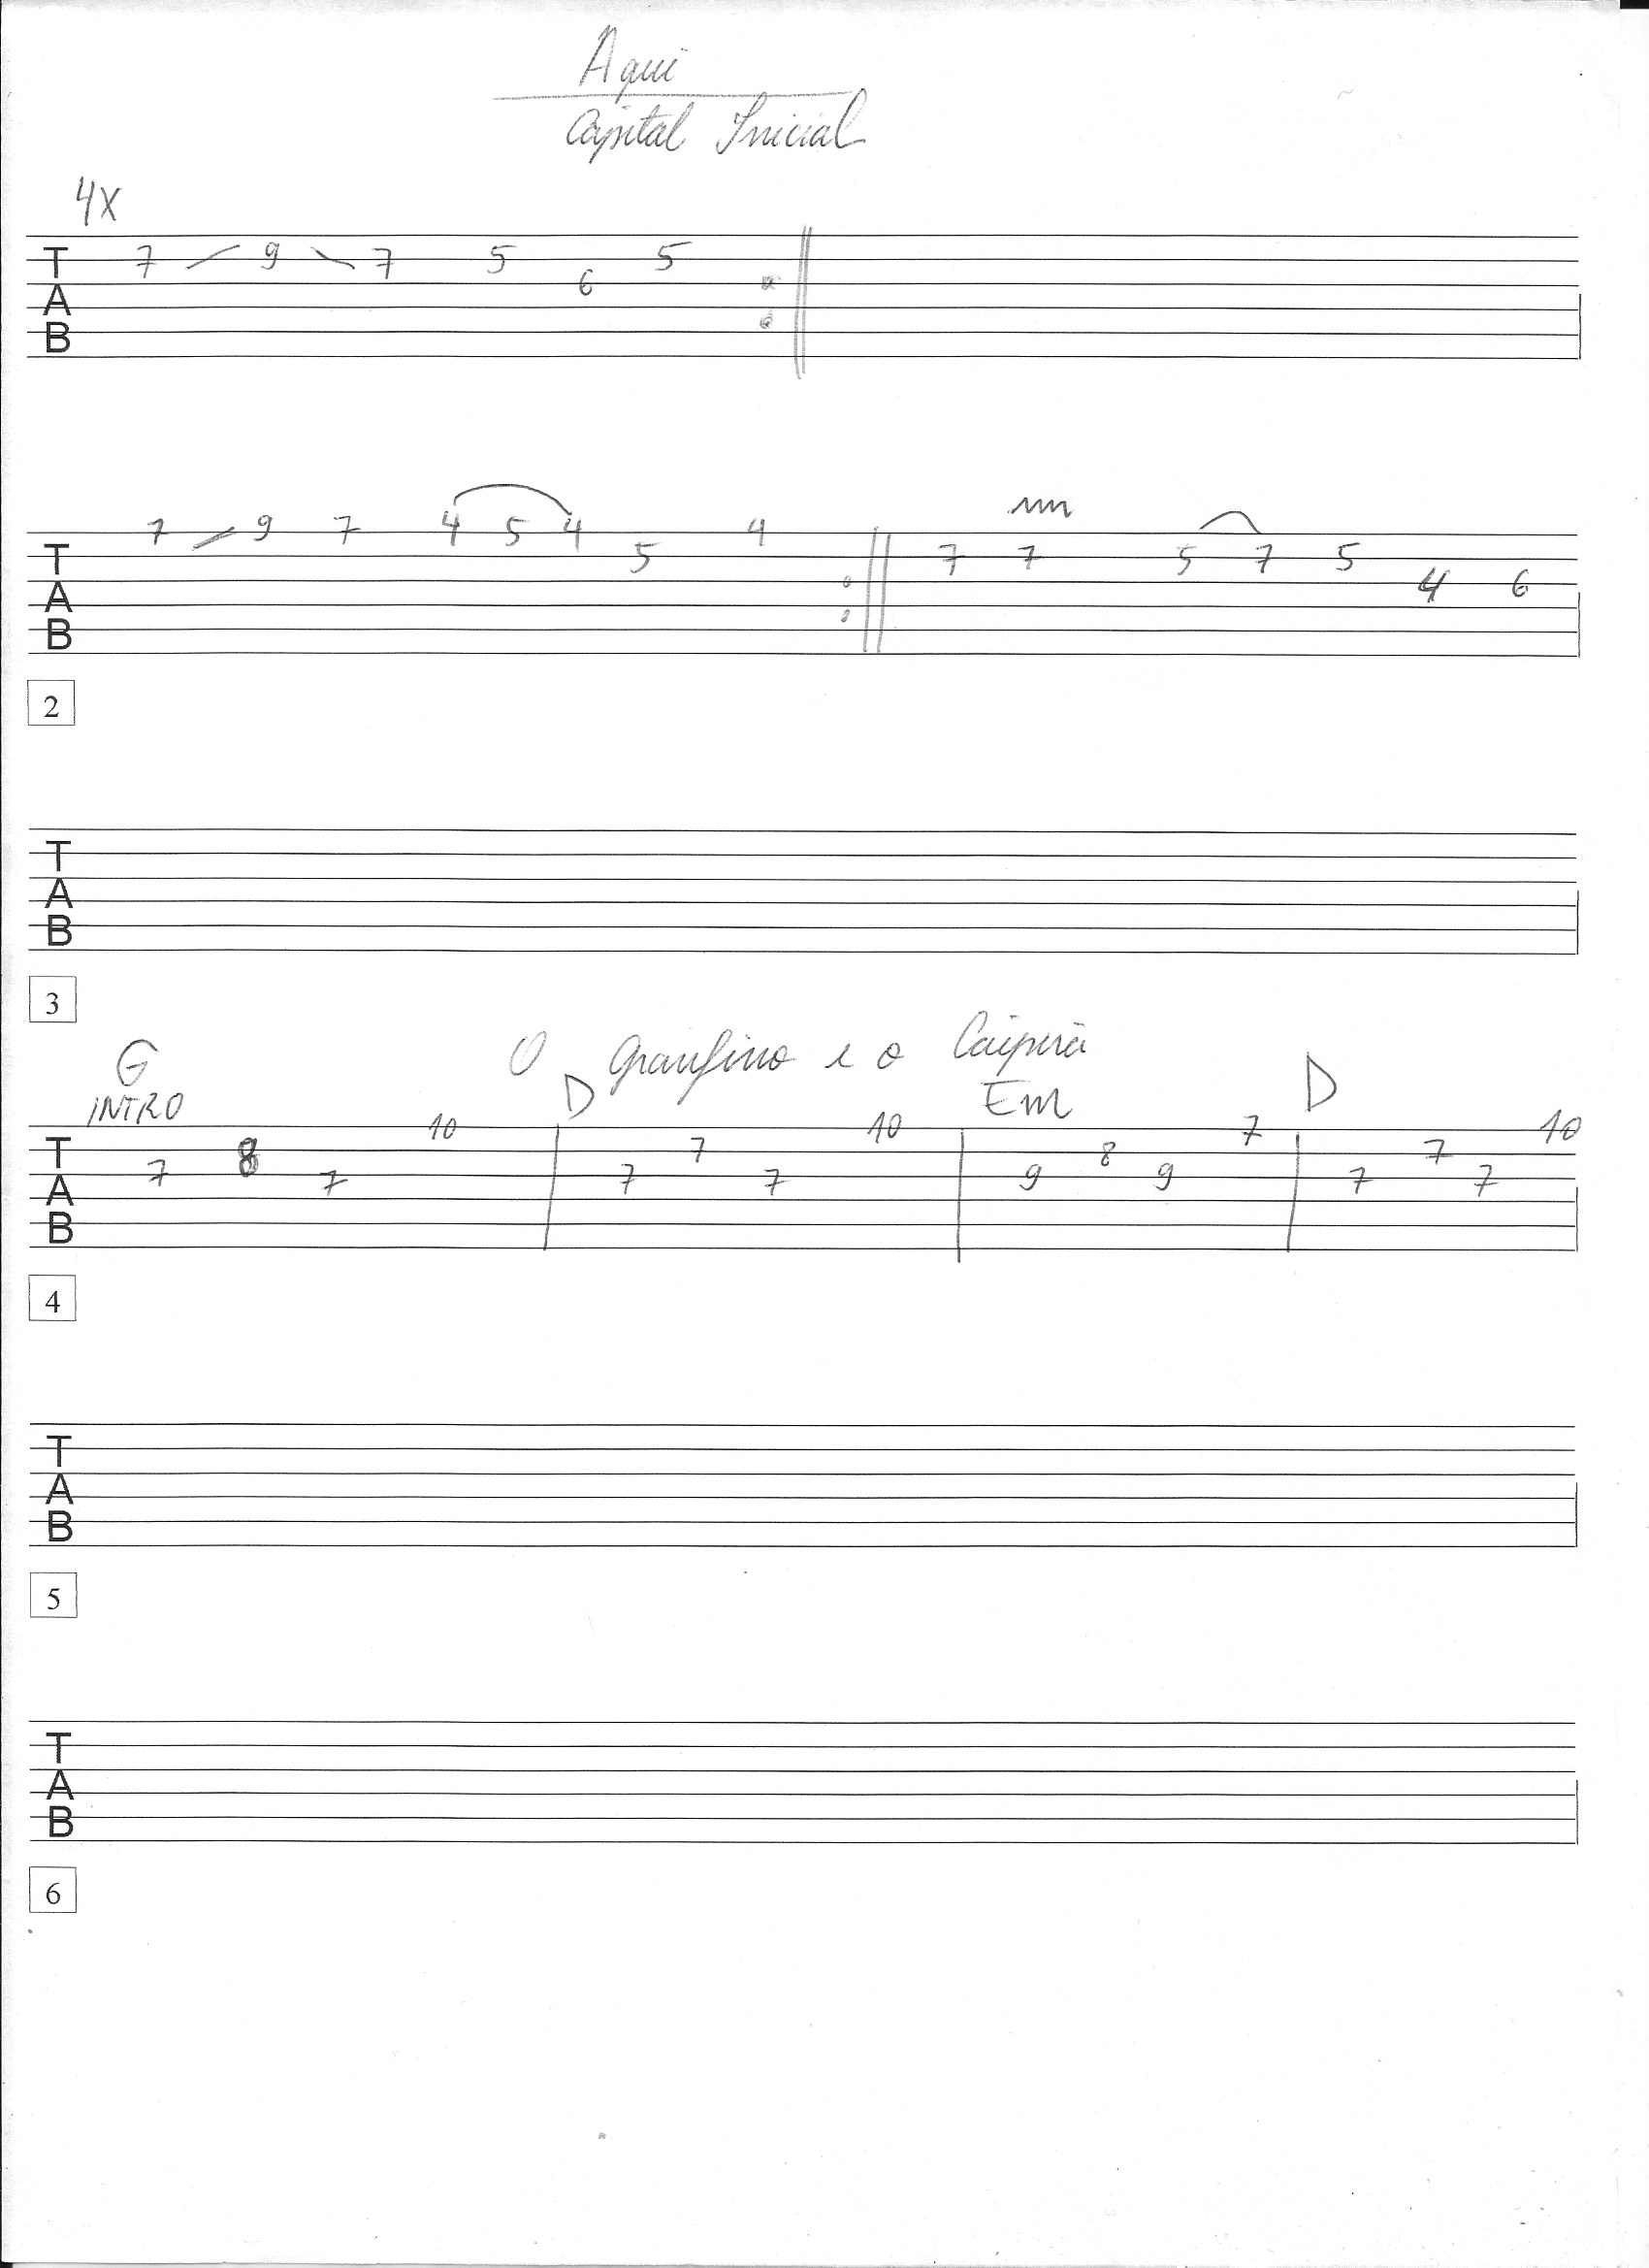 Aqui
Capital Inicial
4X
T A B 7 9 7 5 6 5
T A B 7 9 7 4 5 4 5 4 7 7 5 7 5 4 6
2
T A B
3
O Granfino e o Caipira
G D Em D
INTRO
T A B 7 8 7 10 7 7 7 10 9 8 9 7 7 7 7 10
4
T A B
5
T A B
6